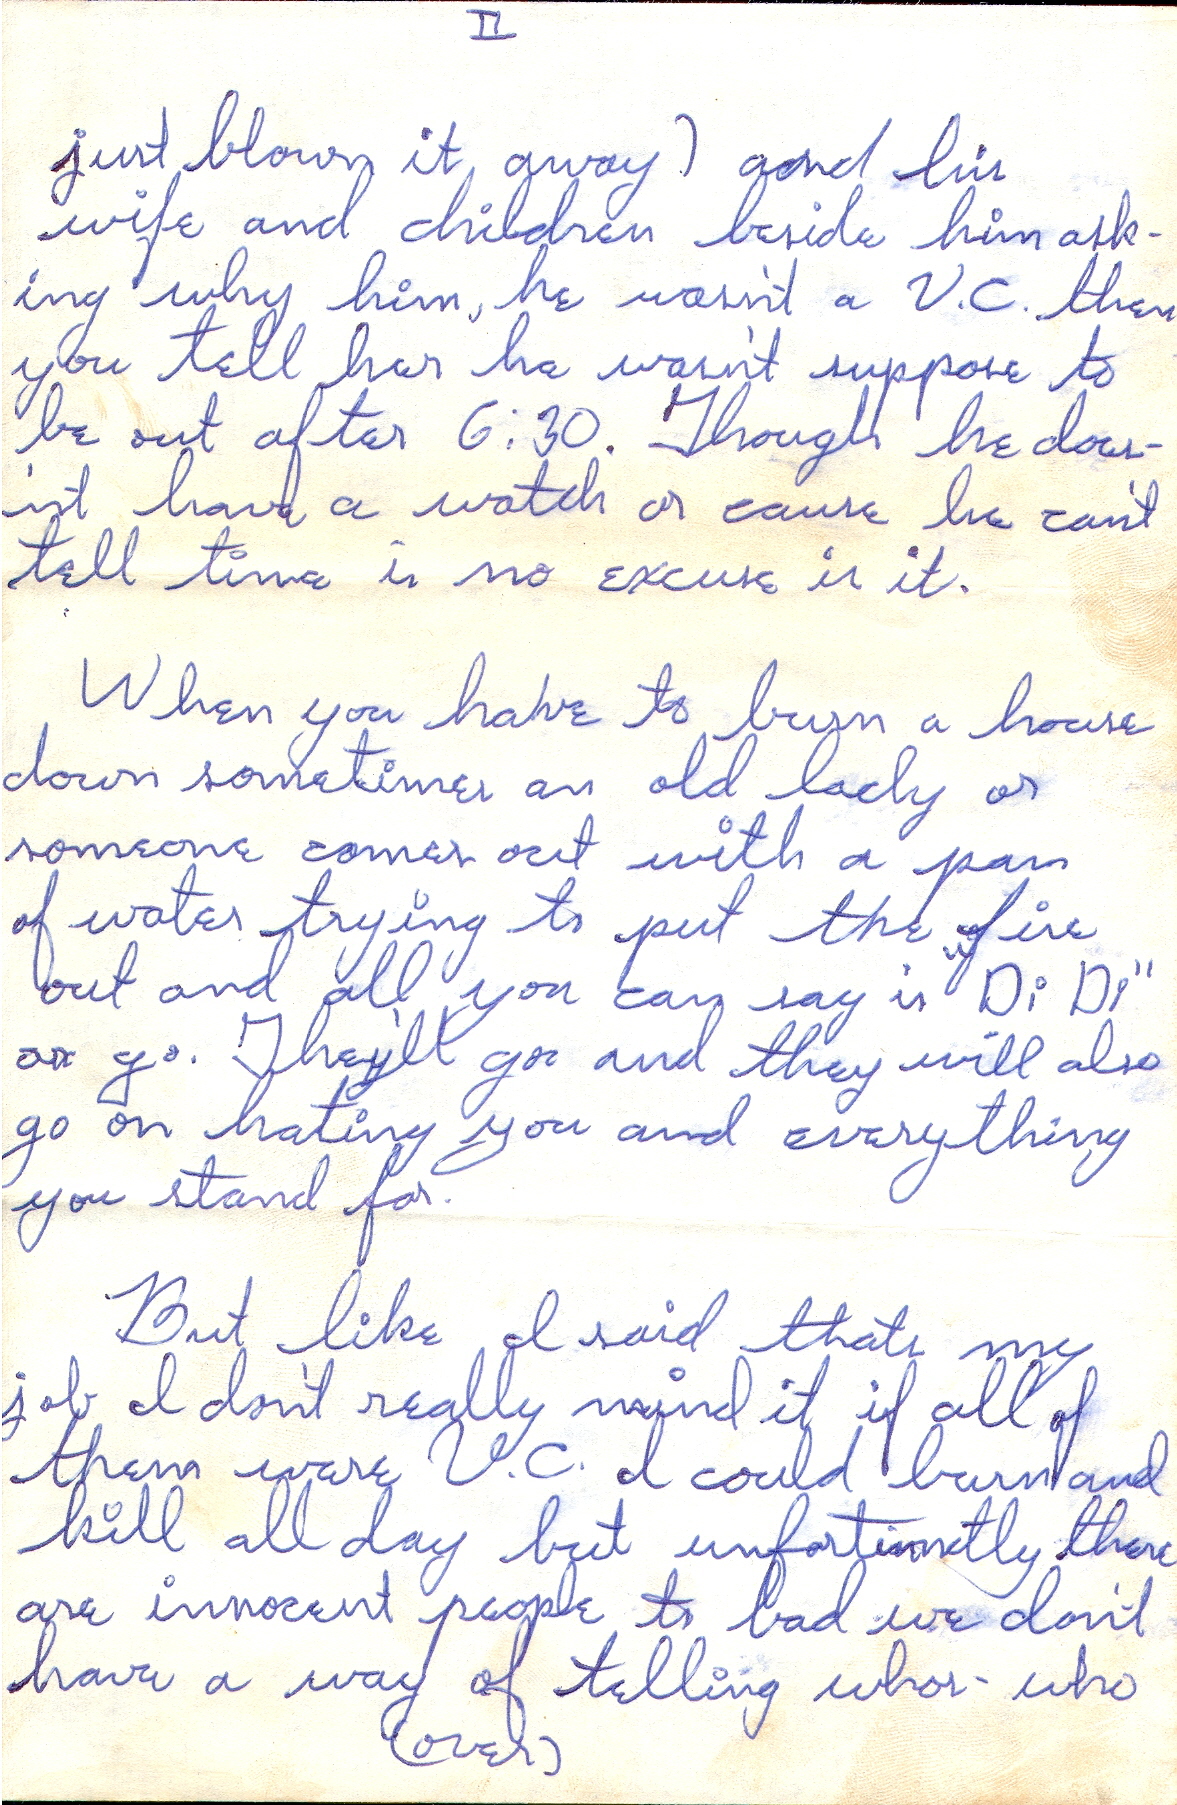 II
just blown it away) and his
wife and children beside him ask-
ing why him, he wasn't a V.C. then
you tell her he wasn't suppose to
be out after 6:30. Though he does-
n't have a watch or cause he can't
tell time is no excuse is it.
When you have to burn a house
down sometimes an old lady or
someone comes out with a pan
of water trying to put the fire
out and all you can say is "Di Di"
or go. They'll go and they will also
go on hating you and everything
you stand for.
But like I said thats my
job I don't really mind it if all of
them were V.C. I could burn and
kill all day but unfortinatly there
are innocent people to bad we don't
have a way of telling whos- who
(over)